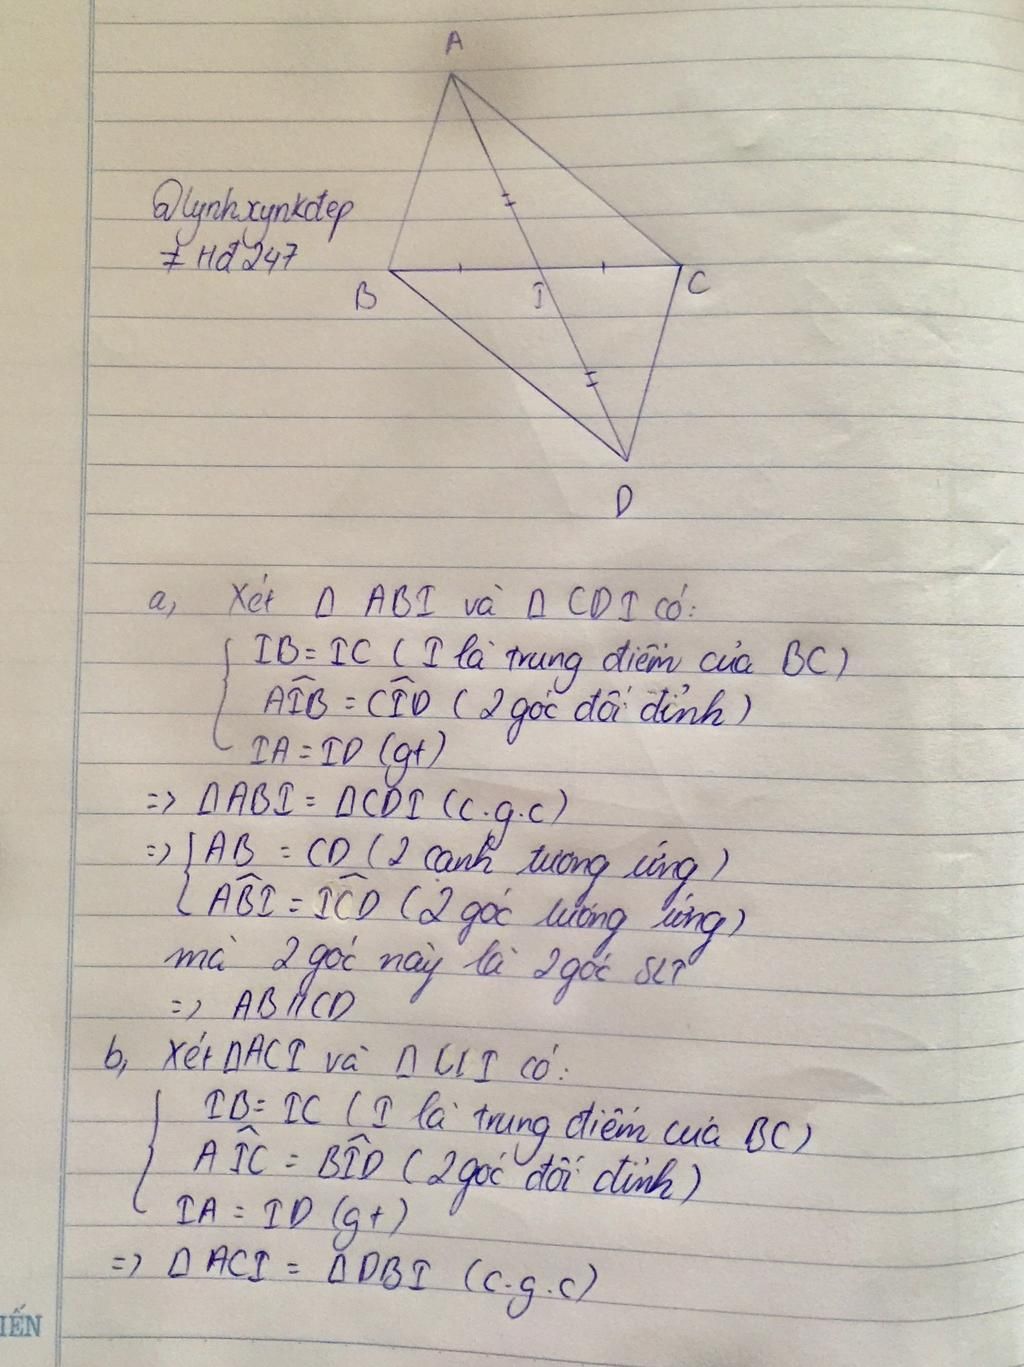 A
@lynhxynkđẹp
≠ Hđ 247
B
I
C
D
a, Xét Δ ABI và Δ CDI có:
IB = IC ( I là trung điểm của BC )
AÎB = CÎD ( 2 góc đối đỉnh )
IA = ID (gt)
=> ΔABI = ΔCDI (c.g.c)
=> AB = CD ( 2 cạnh tương ứng )
AB̂I = IĈD ( 2 góc tương ứng )
mà 2 góc này là 2 góc SLT
=> AB // CD
b, Xét ΔACI và Δ I có:
IB = IC ( I là trung điểm của BC )
AÎC = BÎD ( 2 góc đối đỉnh )
IA = ID (gt)
=> Δ ACI = Δ DBI (c.g.c)
IẾN